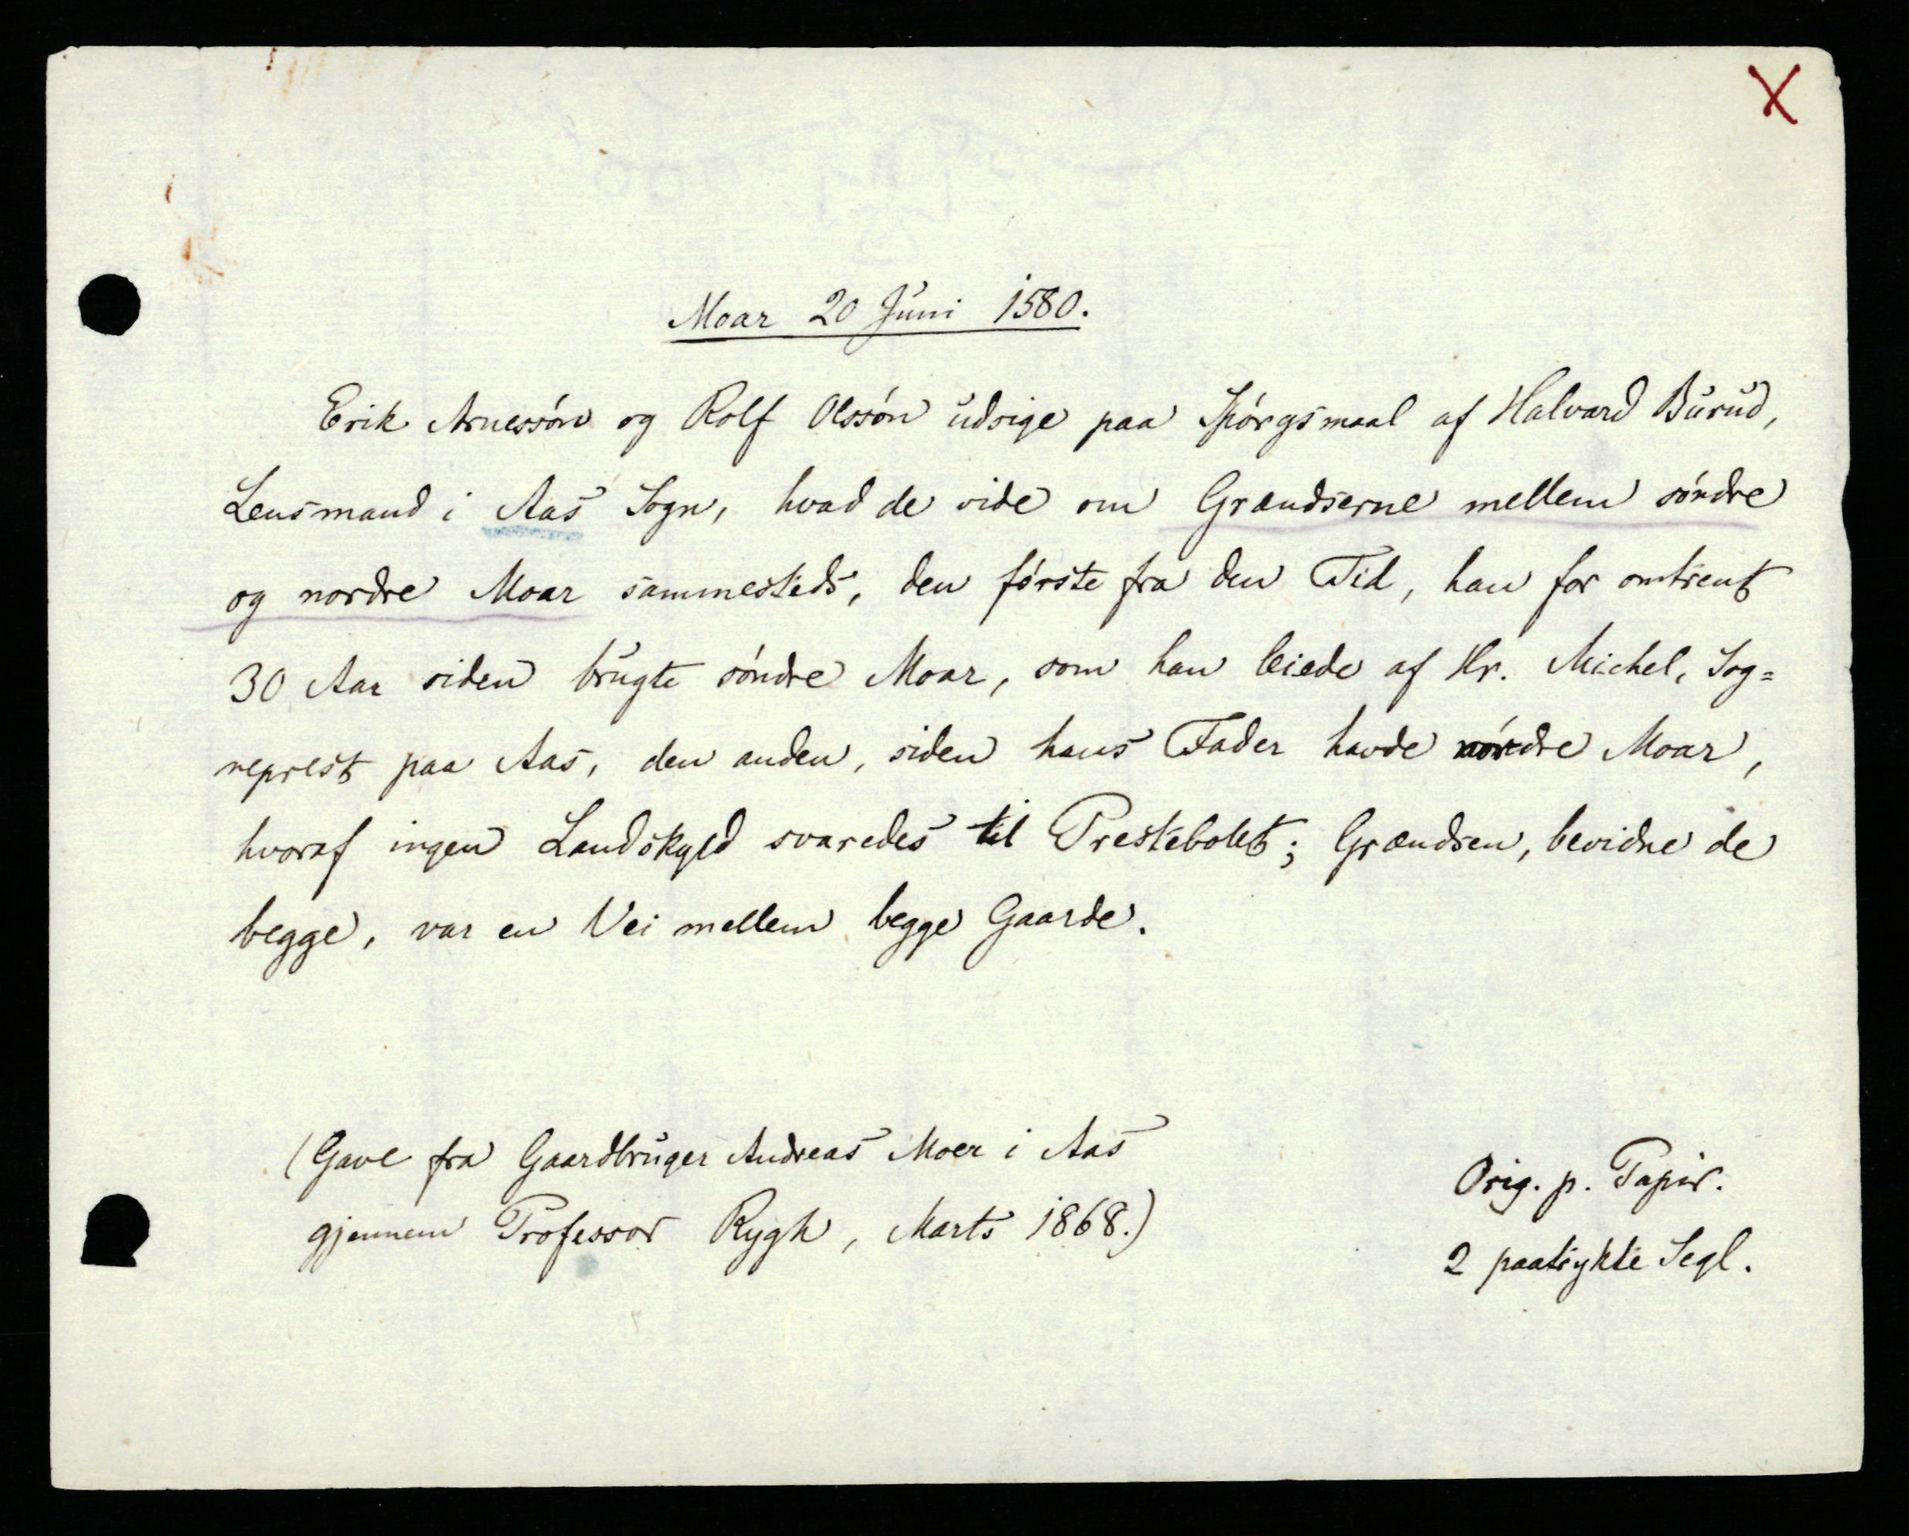 X
Moar 20 Juni 1580.
Erik Arnessøn og Rolf Olssøn udsige paa Spørgsmaal af Halvard Burud,
Lensmand i Aas Sogn, hvad de vide om Grændserne mellem søndre
og nordre Moar sammesteds, den første fra den Tid, han for omtrent
30 Aar siden brugte søndre Moar, som han leiede af Hr. Michel, Sog=
neprest paa Aas, den anden, siden hans Fader havde nordre Moar,
hvoraf ingen Landskyld svaredes til Prestebolet; Grændsen, bevidne de
begge, var en Vei mellem begge Gaarde.
(Gave fra Gaardbruger Andreas Moer i Aas
gjennem Professor Rygh, Marts 1868.)
Orig. p. Papir.
2 paatrykte Segl.